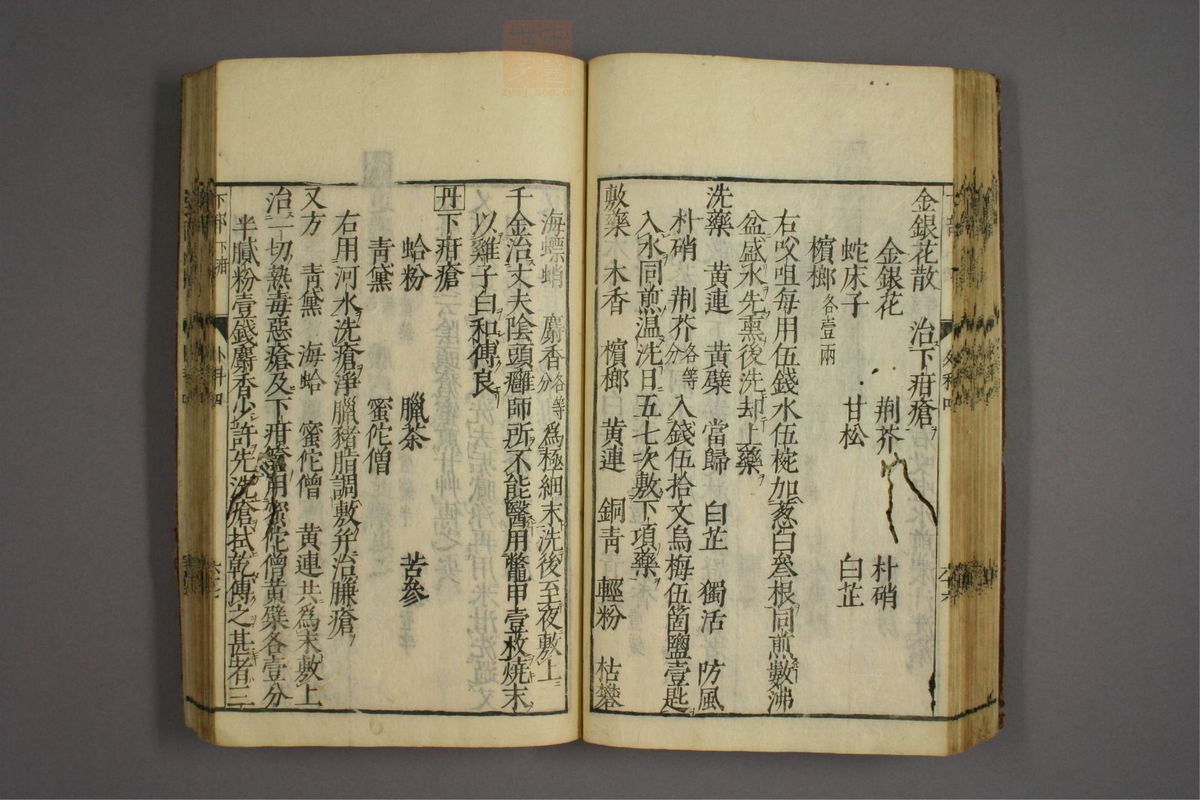 金銀花散 治下疳瘡
金銀花 荆芥 朴硝
蛇床子 甘松 白芷
檳榔各壹兩
右㕮咀每用伍錢水伍椀加葱白叄根同煎數沸
盆盛水先熏後洗却上藥
洗藥 黄連 黄蘗 當歸 白芷 獨活 防風
朴硝 荆芥各等分 入錢伍拾文烏梅伍箇鹽壹匙
入水同煎温洗日五七次敷下項藥
敷藥 木香 檳榔 黄連 銅青 輕粉 枯礬
海螵蛸 麝香各等分 爲極細末洗後至夜敷上
千金治丈夫陰頭癰師所不能醫用鼈甲壹枚燒末
以雞子白和傅良
丹下疳瘡
蛤粉 臘茶 苦參
青黛 蜜佗僧
右用河水洗瘡淨臘豬脂調敷并治臁瘡
又方 青黛 海蛤 蜜佗僧 黄連共爲末敷上
治一切熱毒惡瘡及下疳瘡用蜜佗僧黄蘗各壹分
半膩粉壹錢麝香少許先洗瘡拭乾傅之甚者三
下部 下疳
外科四